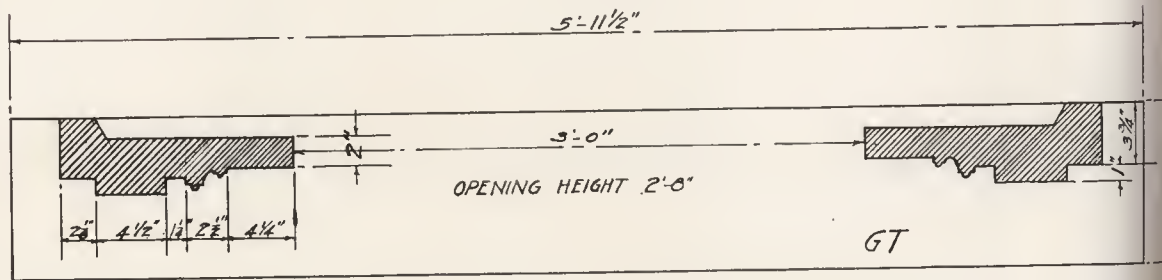 5'-11½"
2"
3'-0"
3¾"
1"
OPENING HEIGHT 2'-8"
2¼" 4½" 1¼" 2½" 4¼"
GT